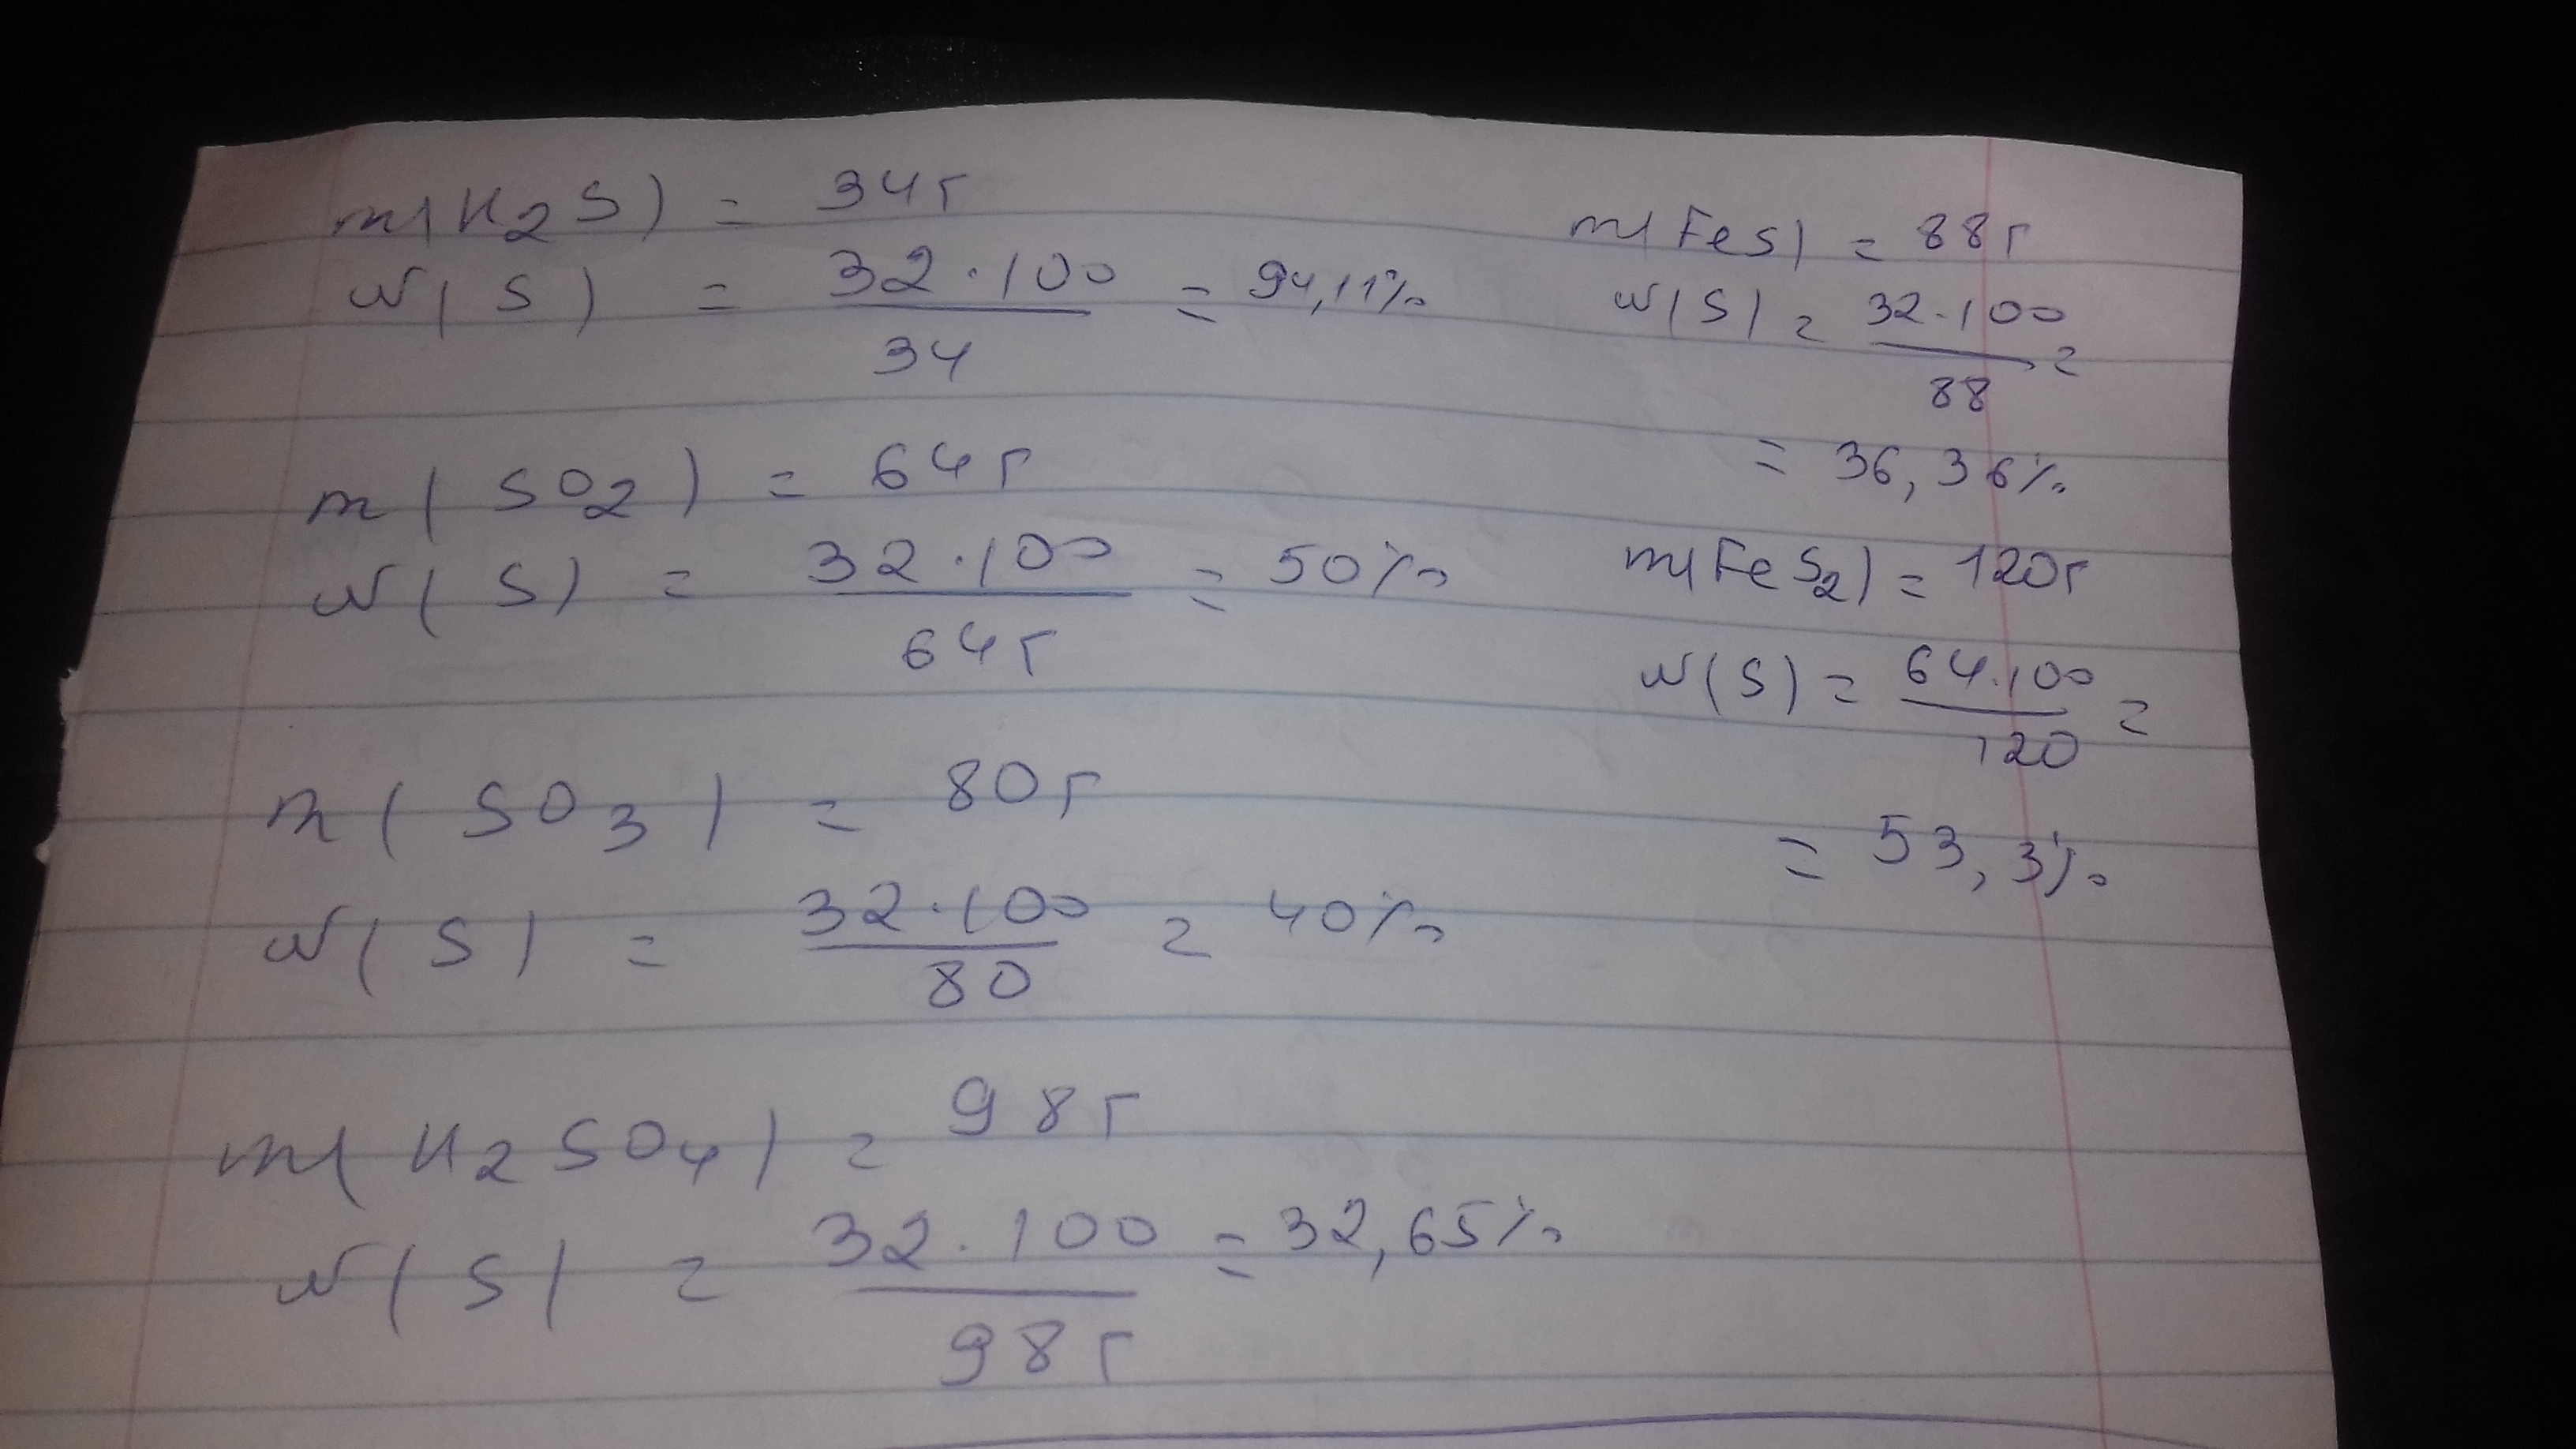 m(H2S) = 34г
w(S) = 32·100 / 34 = 94,11%
m(SO2) = 64г
w(S) = 32·100 / 64г = 50%
m(SO3) = 80г
w(S) = 32·100 / 80 = 40%
m(H2SO4) = 98г
w(S) = 32·100 / 98г = 32,65%
m(FeS) = 88г
w(S) = 32·100 / 88 =
= 36,36%
m(FeS2) = 120г
w(S) = 64·100 / 120 =
= 53,3%